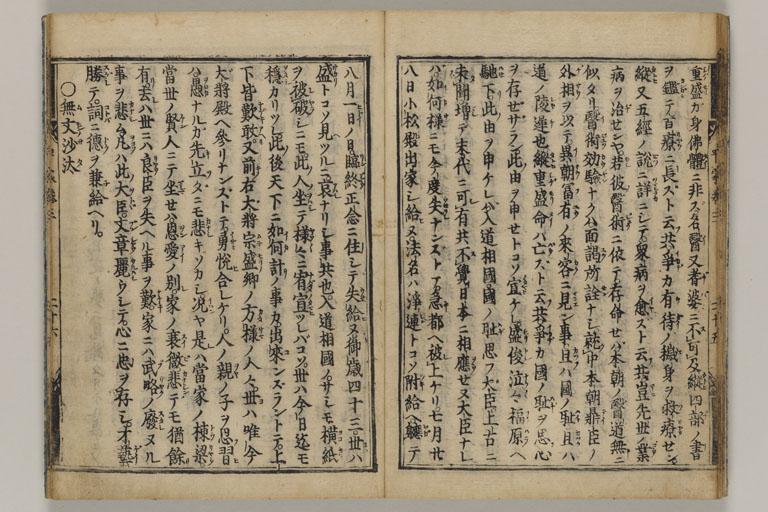 重盛カ身佛體ニ非ス名醫又耆婆ニ不可及縱四部ノ書
ヲ鑑テ百療ニ長スト云共爭カ有待ノ穢身ヲ救療セン
縱又五經ノ説ニ詳ニシテ衆病ヲ愈スト云共豈先世ノ業
病ヲ治センヤ若彼醫術ニ依テ存命セハ本朝ノ醫道無ニ
似タリ醫術効驗ナクハ面謁所詮ナシ就中本朝鼎臣ノ
外相ヲ以テ異朝冨有ノ來客ニ見ン事且ハ國ノ耻且ハ
道ノ陵遲也縱重盛命ハ亡スト云共爭カ國ノ耻ヲ思心
ヲ存セサラン此由ヲ申セトコソ宣ケレ盛俊泣々福原ヘ
馳下此由ヲ申ケレハ入道相國國ノ耻思フ大臣上古ニ
未聞増テ末代ニ可有共不覺日本ニ相應セヌ大臣ナレ
ハ如何樣ニモ今度失ナンストテ急都ヘ被上ケリ七月廿
八日小松殿出家シ給ヌ法名ハ淨蓮トコソ附給ヘ軈テ
八月一日ノ日臨終正念ニ住シテ失給ヌ御歳四十三世ハ
盛トコソ見ツルニ哀ナリシ事共也入道相國ノサシモ横紙
ヲ被破シニモ此人坐テ樣々ニ宥宣ツレハコソ世ハ今日迄モ
穩カリツレ此後天下ニ如何計ノ事カ出來ンズラントテ上
下皆歎敢又前右大將宗盛卿ノ方樣ノ人々世ハ唯今
大將殿ヘ參リナンストテ勇悦合レケリ人ノ親ノ子ヲ思習
ハ愚ナルカ先立タニモ悲キソカシ况ヤ是ハ當家ノ棟梁
當世ノ賢人ニテ坐セハ恩愛ノ別家ノ衰微悲テモ猶餘
有去ハ世ニハ良臣ヲ失ヘル事ヲ歎家ニハ武略ノ廢ヌル
事ヲ悲ム凡ハ此大臣文章麗ウシテ心ニ忠ヲ存シ才藝
勝テ詞ニ德ヲ兼給ヘリ。
○無文沙汰